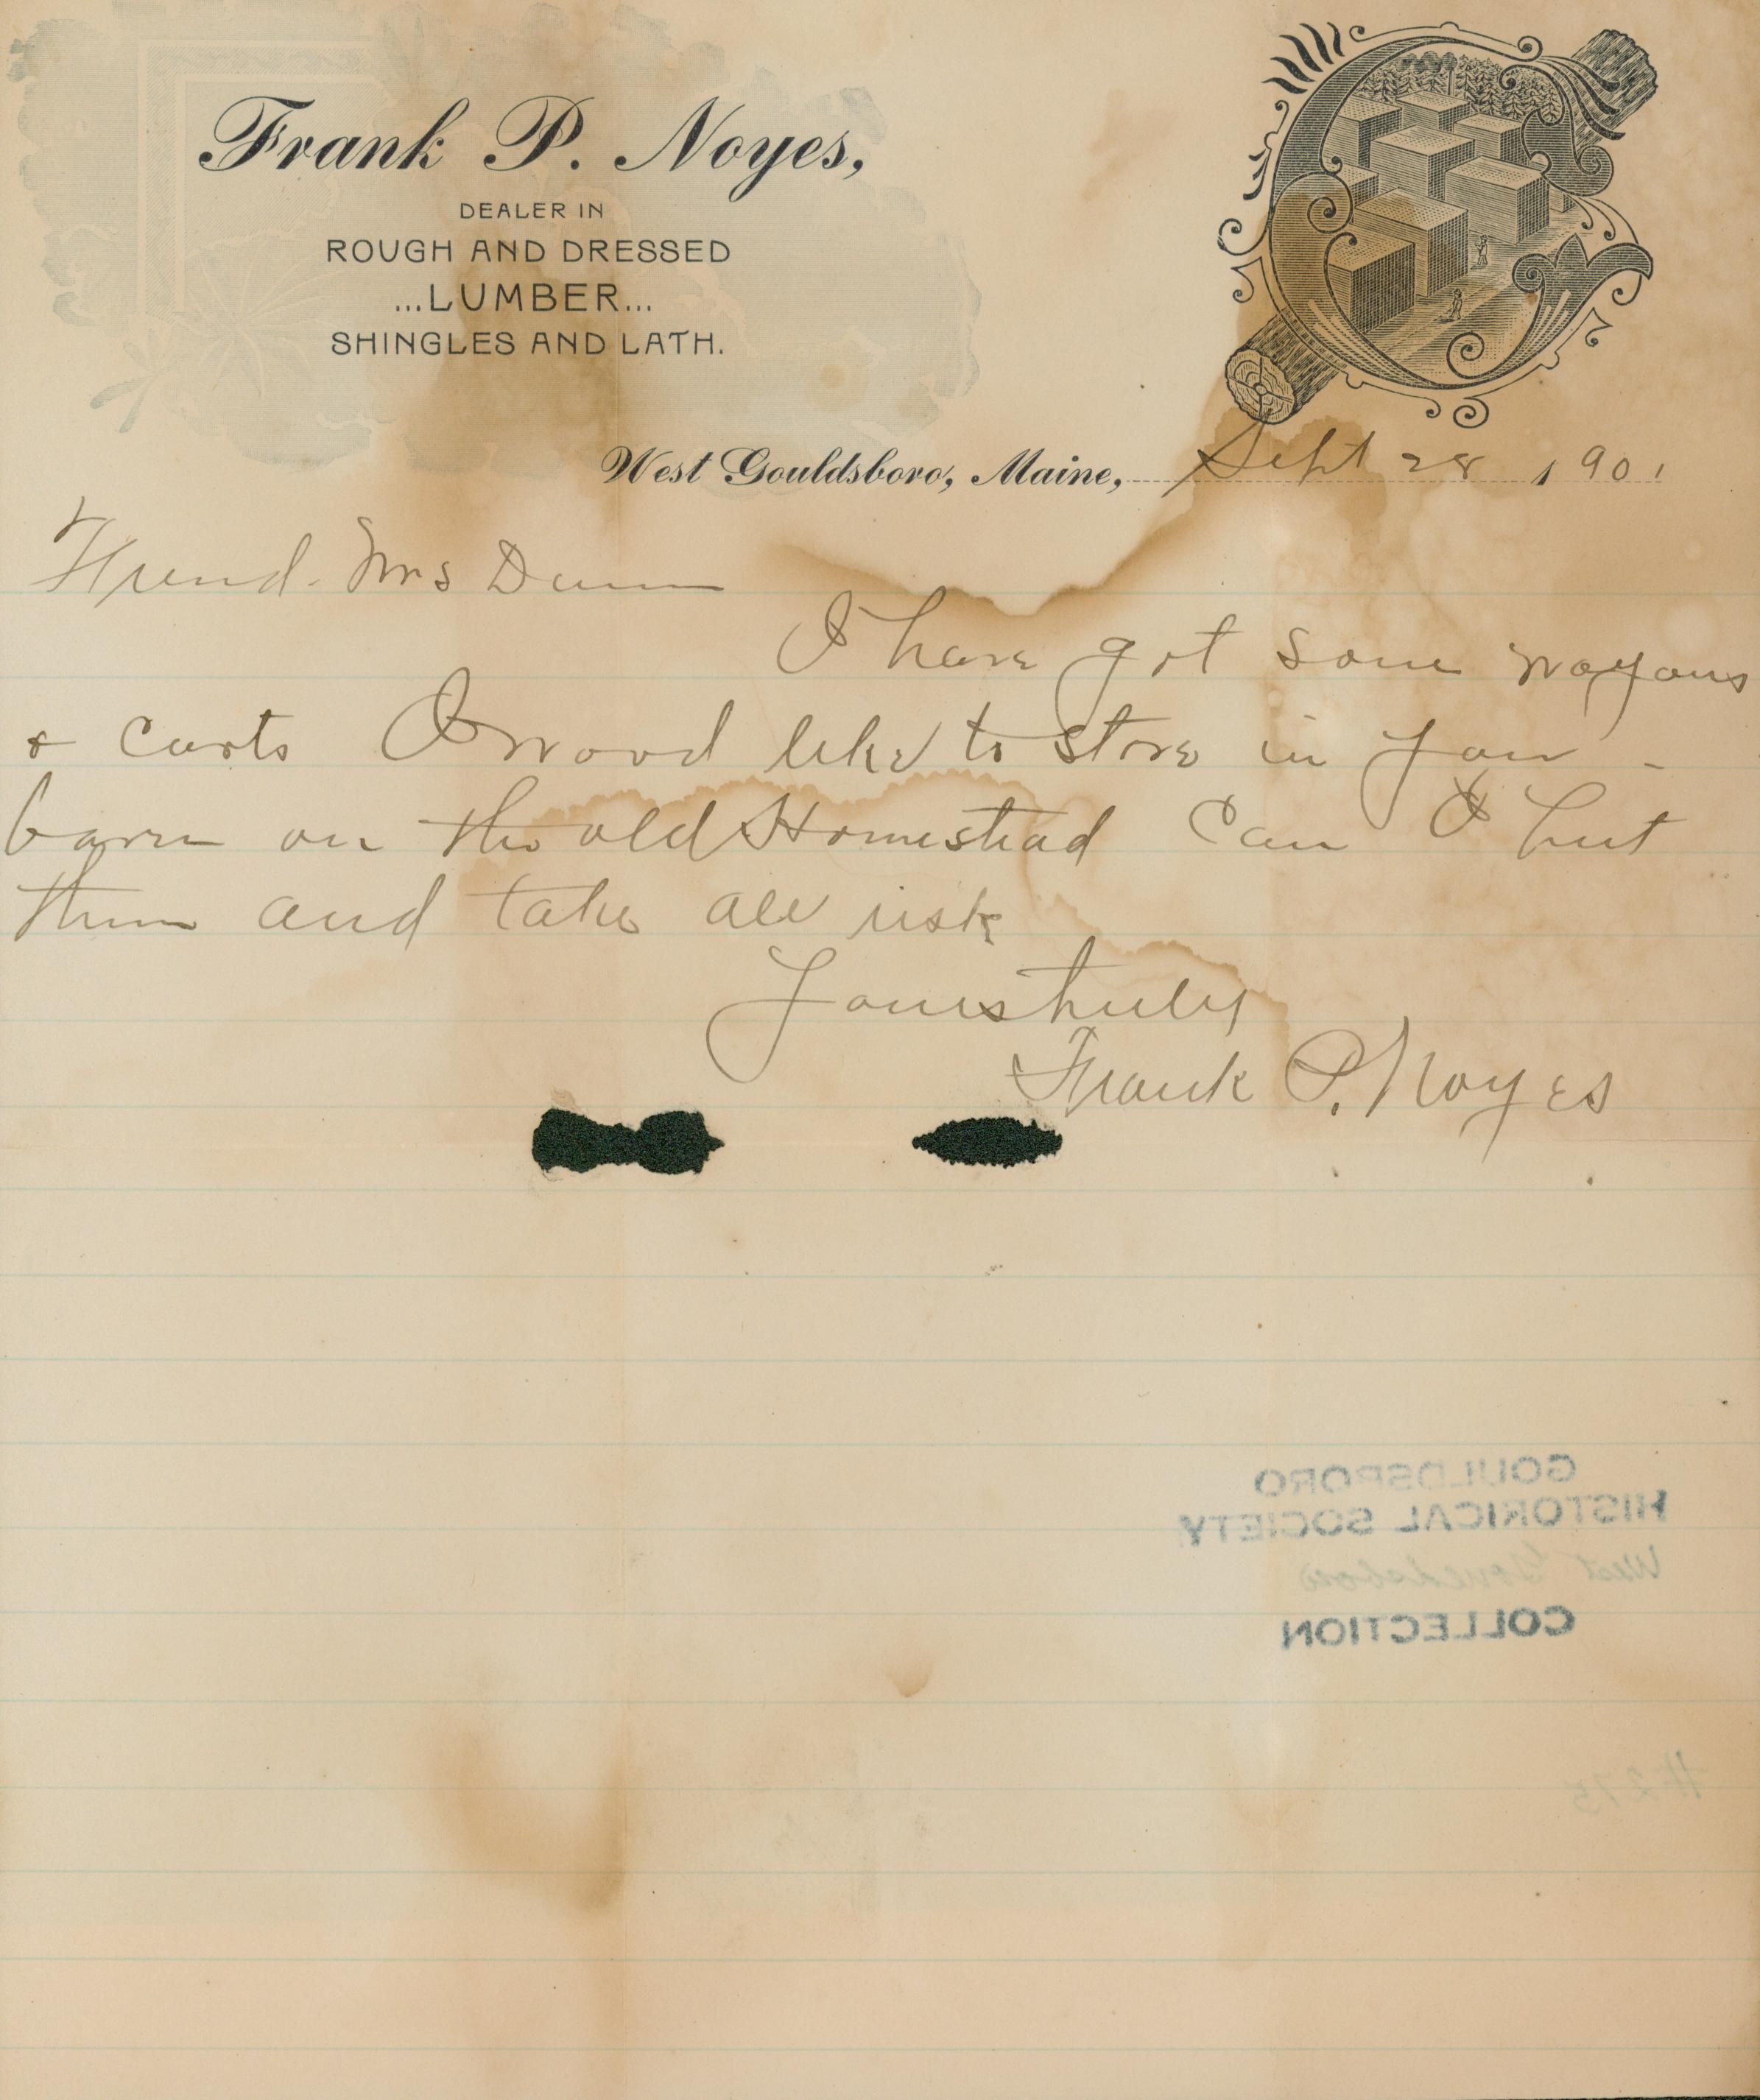 Frank P. Noyes,
DEALER IN
ROUGH AND DRESSED
...LUMBER...
SHINGLES AND LATH.
West Gouldsboro, Maine, Sept 28 1901
Friend. Mrs Dunn
I have got some wagons
& carts I wood like to store in your -
barn on the old Homestead Can I put
them and take all risk
Yours truly
Frank P. Noyes
GOULDSBORO
HISTORICAL SOCIETY
West Gouldsboro
COLLECTION
#275